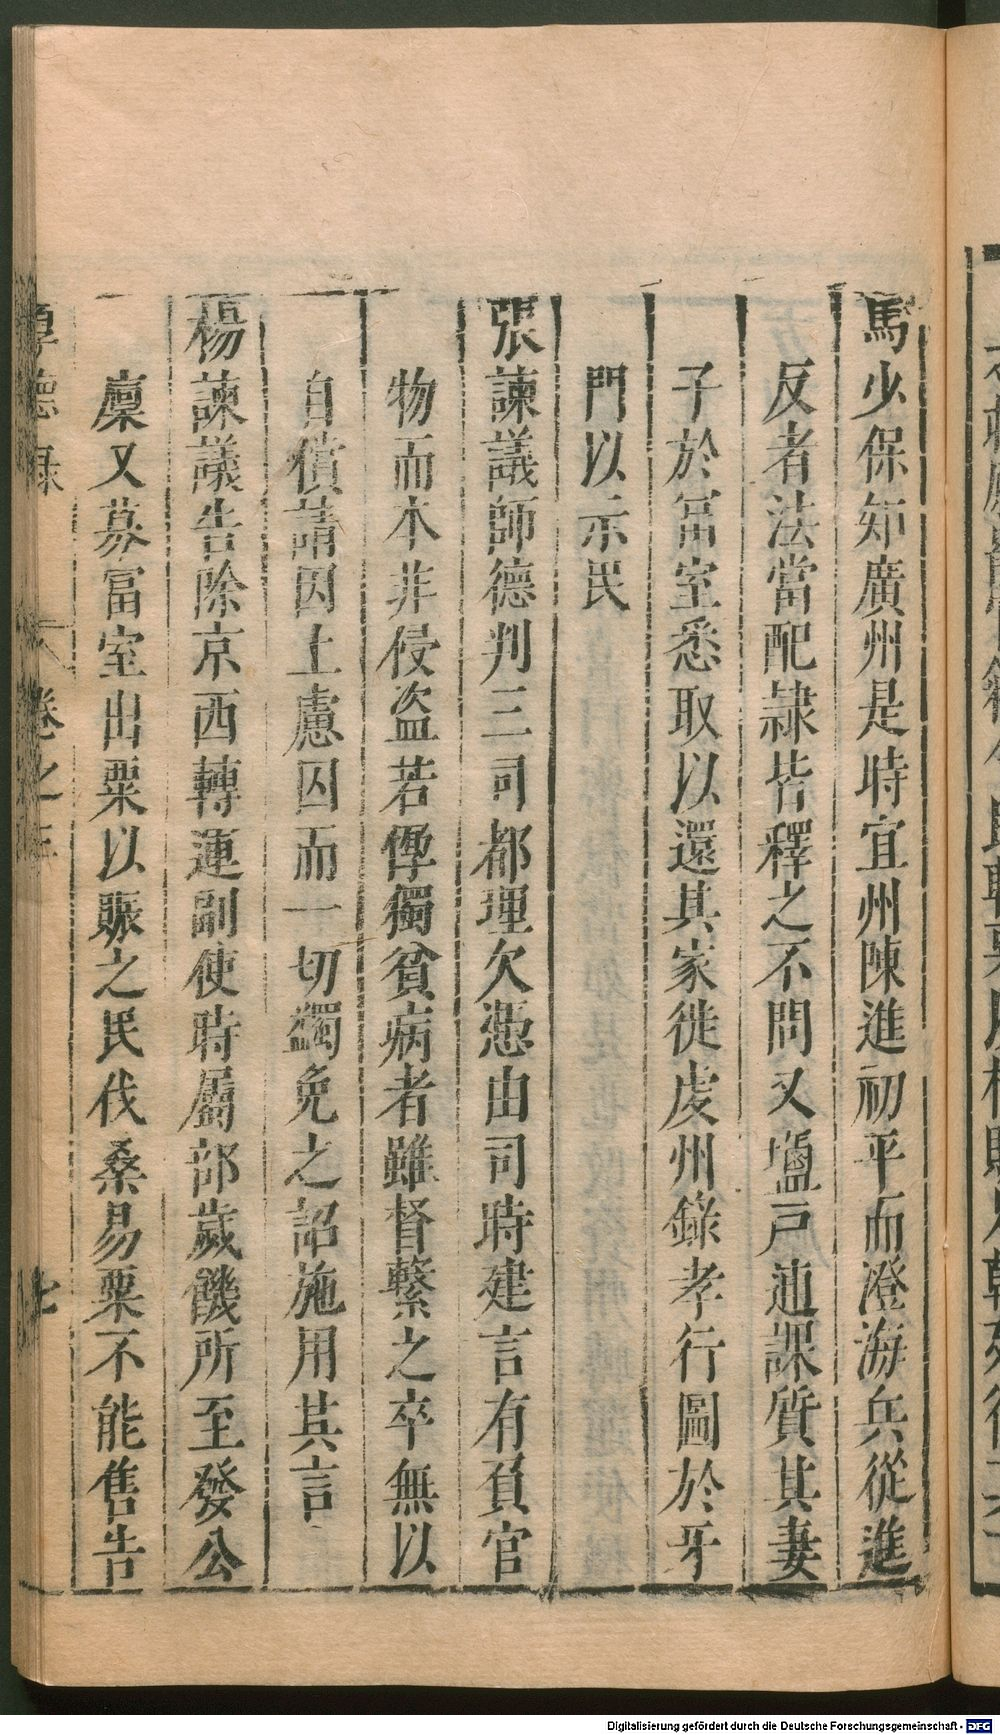 馬少保知廣州是時宜州陳進初平而澄海兵從進
反者法當配隷皆釋之不問又塩戸逋課質其妻
子於冨室悉取以還其家徙虔州錄孝行圖於牙
門以示民
張諫議師德判三司都理欠憑由司時建言有負官
物而本非侵盗若惸獨貧病者雖督繫之卒無以
自償請因上慮囚而一切蠲免之詔施用其言
楊諫議告除京西轉運副使時屬部歲饑所至發公
廩又募冨室出粟以賑之民伐桑易粟不能售告
厚德録 卷之三 七
Digitalisierung gefördert durch die Deutsche Forschungsgemeinschaft - DFG